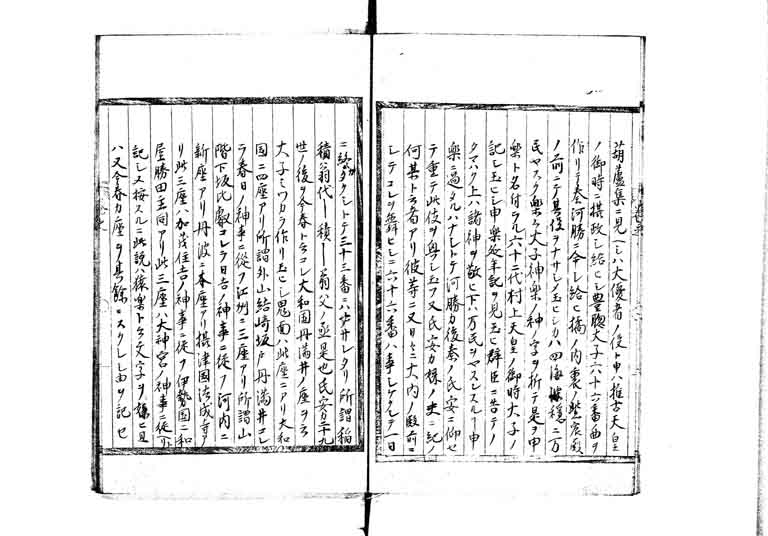 葫蘆集ニ見ヘシハ大優者ノ伎ト申ハ推古天皇
ノ御時ニ摂政シ給ヒシ豊聰太子六十六番曲ヲ
作リテ秦河勝ニ令シ給ヒ橘ノ内裏ノ紫宸殿
ノ前ニテ其伎ヲナサシメ玉ヒシカハ四海穏ニ万
民ヤスク太子神楽ノ神ノ字ヲ折テ是ヲ申
楽ト名付ケラル六十二代村上天皇ノ御時太子ノ
記シ玉ヒシ申楽延年記ヲ見玉ヒ群臣ニ告テノ
タマハク上ハ諸神ヲ敬ヒ下ハ万民ヲヤスンスル申
楽ニ過タルハナシトテ河勝カ後秦ノ氏安ニ仰セ
テ重テ此伎ヲ興シ玉フ又氏安カ妹ノ夫ニ紀ノ
何某ト云者アリ彼等ニ又曰セテ大内ノ殿前ニ
シテコレヲ舞ヒシニ六十六番ハ事シゲクシテ一日
ニシトテ三十三番ニハナサレタリ所謂稲
積翁代積翁父ノ丞是也氏安ヨリ二十九
世ノ後ヲ今春ト云コレ大和国円満井ノ座ヲ云
太子ミツカラ作リ玉ヒシ鬼面ハ此座ニアリ大和
国ニ四座アリ所謂外山結崎坂戸円満井コレ
ラ春日ノ神事ニ從フ江州ニ三座アリ所謂山
階下坂比叡コレラ日吉ノ神事ニ從フ河内ニ
新座アリ丹波ニ本座アリ摂津國法成寺ア
リ此三座ハ加茂住吉ノ神事ニ從フ伊勢国ニ和
屋勝田主同アリ此三座ハ大神宮ノ神事ニ從フト
記シ又按スルニ此説ハ猿楽ト云文字ヲ嫌ヒ且
ハ又今春カ座ヲ其餘ニスクレシ由ヲ記セ